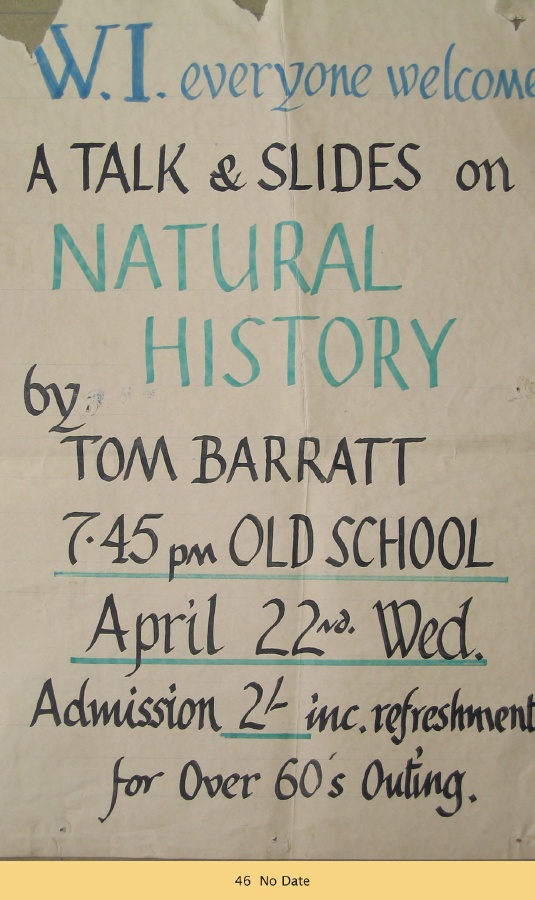 W.I. everyone welcome
A TALK & SLIDES on
NATURAL
HISTORY
by
TOM BARRATT
7·45 pm OLD SCHOOL
April 22nd. Wed.
Admission 2/- inc. refreshment
for Over 60's Outing.
46 No Date